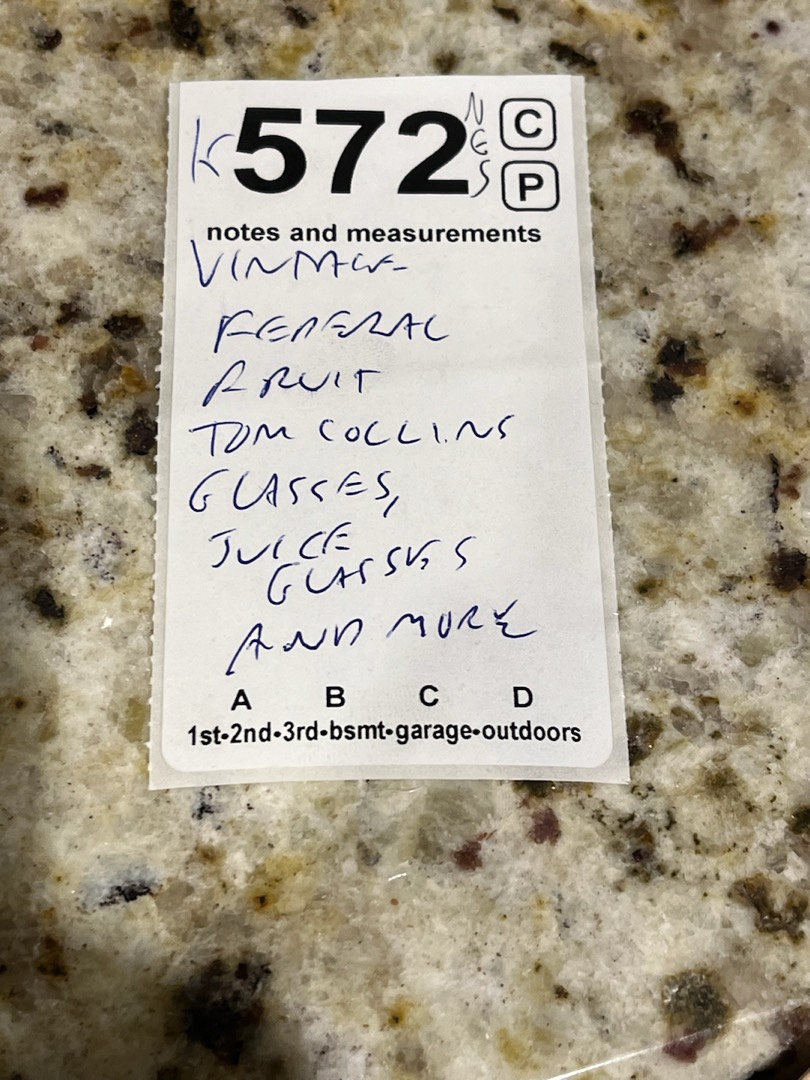 K 572 NES C
P
notes and measurements
VINTAGE
FEDERAL
FRUIT
TOM COLLINS
GLASSES,
JUICE
GLASSES
AND MORE
A B C D
1st•2nd•3rd•bsmt•garage•outdoors